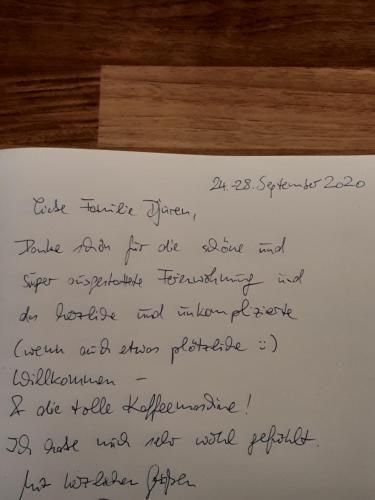 24.-28. September 2020
Liebe Familie Djüren,
Danke schön für die schöne und
super ausgestattete Ferienwohnung und
das herzliche und unkomplizierte
(wenn auch etwas plötzliche :-)
Willkommen -
& die tolle Kaffeemaschine!
Ich habe mich sehr wohl gefühlt.
Mit herzlichen Grüßen